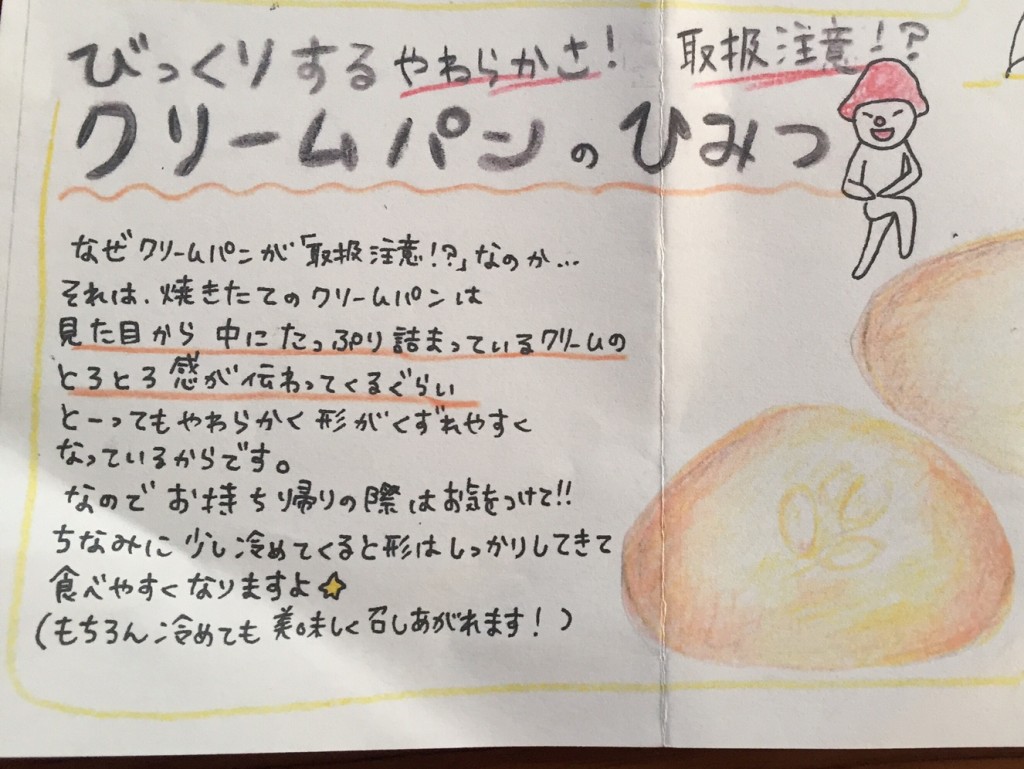 びっくりするやわらかさ! 取扱注意!?
クリームパンのひみつ
なぜクリームパンが「取扱注意!?」なのか…
それは、焼きたてのクリームパンは
見た目から中にたっぷり詰まっているクリームの
とろとろ感が伝わってくるぐらい
とーってもやわらかく形がくずれやすく
なっているからです。
なのでお持ち帰りの際はお気をつけて!!
ちなみに少し冷めてくると形はしっかりしてきて
食べやすくなりますよ☆
(もちろん冷めても美味しく召しあがれます!)